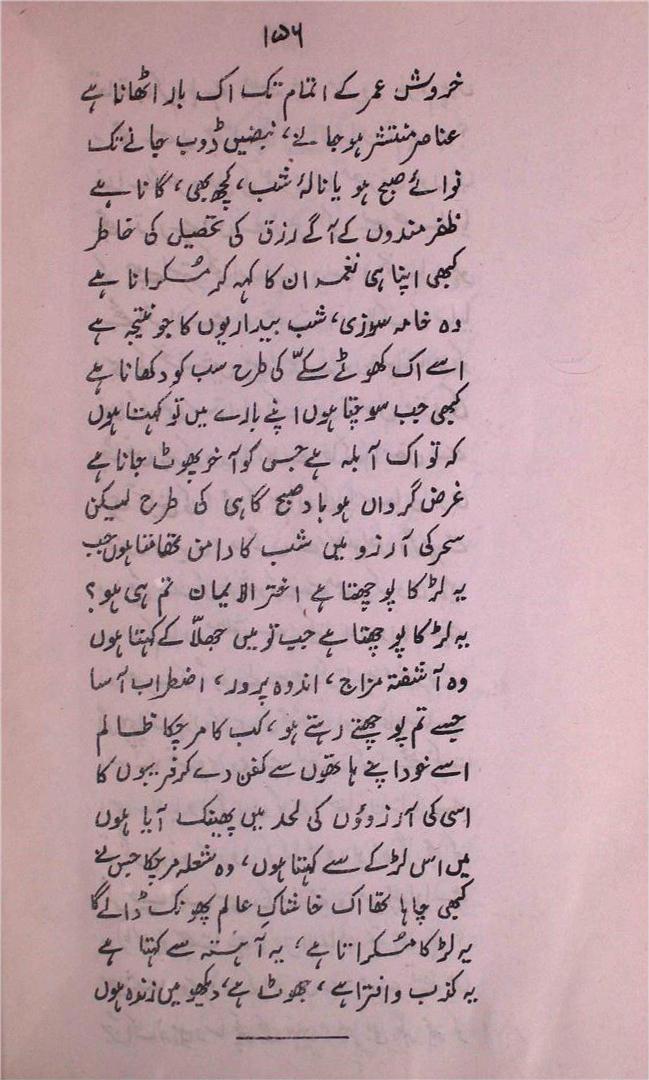 ۱۵۶
خروش عمر کے اتمام تک اک بار اٹھانا ہے
عناصر منتشر ہو جانے، نبضیں ڈوب جانے تک
نوائے صبح ہو یا نالۂ شب، کچھ بھی، گانا ہے
ظفر مندوں کے آگے رزق کی تحصیل کی خاطر
کبھی اپنا ہی نغمہ ان کا کہہ کر مُسکرانا ہے
وہ خامہ سوزی، شب بیداریوں کا جو نتیجہ ہے
اسے اک کھوٹے سکّے کی طرح سب کو دکھانا ہے
کبھی جب سوچتا ہوں اپنے بارے میں تو کہتا ہوں
کہ تو اک آبلہ ہے جس کو آخر پھوٹ جانا ہے
غرض گرداں ہو بادِ صبح گاہی کی طرح لیکن
سحر کی آرزو میں شب کا دامن تھامتا ہوں جب
یہ لڑکا پوچھتا ہے اختر الایمان تم ہی ہو؟
یہ لڑکا پوچھتا ہے جب تو میں جھلّا کے کہتا ہوں
وہ آشفتہ مزاج، اندوہ پرور، اضطراب آسا
جسے تم پوچھتے رہتے ہو، کب کا مر چکا ظالم
اسے خود اپنے ہاتھوں سے کفن دے کر فریبوں کا
اسی کی آرزوؤں کی لحد میں پھینک آیا ہوں
میں اس لڑکے سے کہتا ہوں، وہ شعلہ مر چکا جس نے
کبھی چاہا تھا اک خاشاکِ عالم پھونک ڈالے گا
یہ لڑکا مُسکراتا ہے، یہ آہستہ سے کہتا ہے
یہ کذب و افترا ہے، جھوٹ ہے، دیکھو میں زندہ ہوں